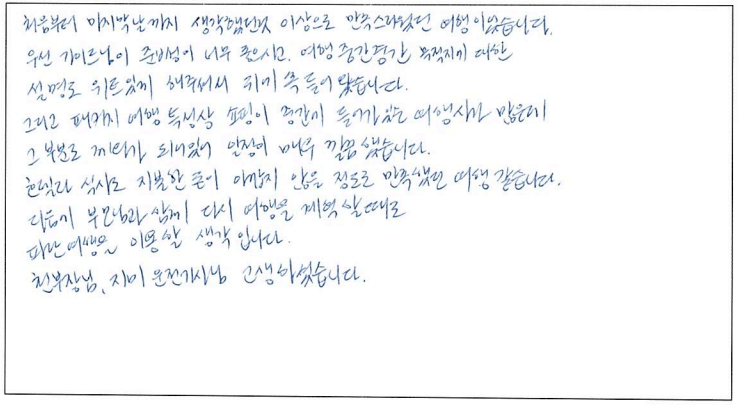 처음부터 마지막날까지 생각했던것 이상으로 만족스러웠던 여행이었습니다.
우선 가이드님이 준비성이 너무 좋으시고, 여행 중간중간 목적지에 대한
설명도 위트있게 해주셔서 귀에 쏙 들어 왔습니다.
그리고 패키지 여행 특성상 쇼핑이 중간에 들어가있는 여행사가 많은데
그 부분도 제외가 되어있어 일정이 매우 깔끔했습니다.
호텔과 식사도 지불한 돈이 아깝지 않을 정도로 만족했던 여행 같습니다.
다음에 부모님과 함께 다시 여행을 계획 할때도
파란여행을 이용할 생각입니다.
천부장님, 지미 운전기사님 고생하셨습니다.